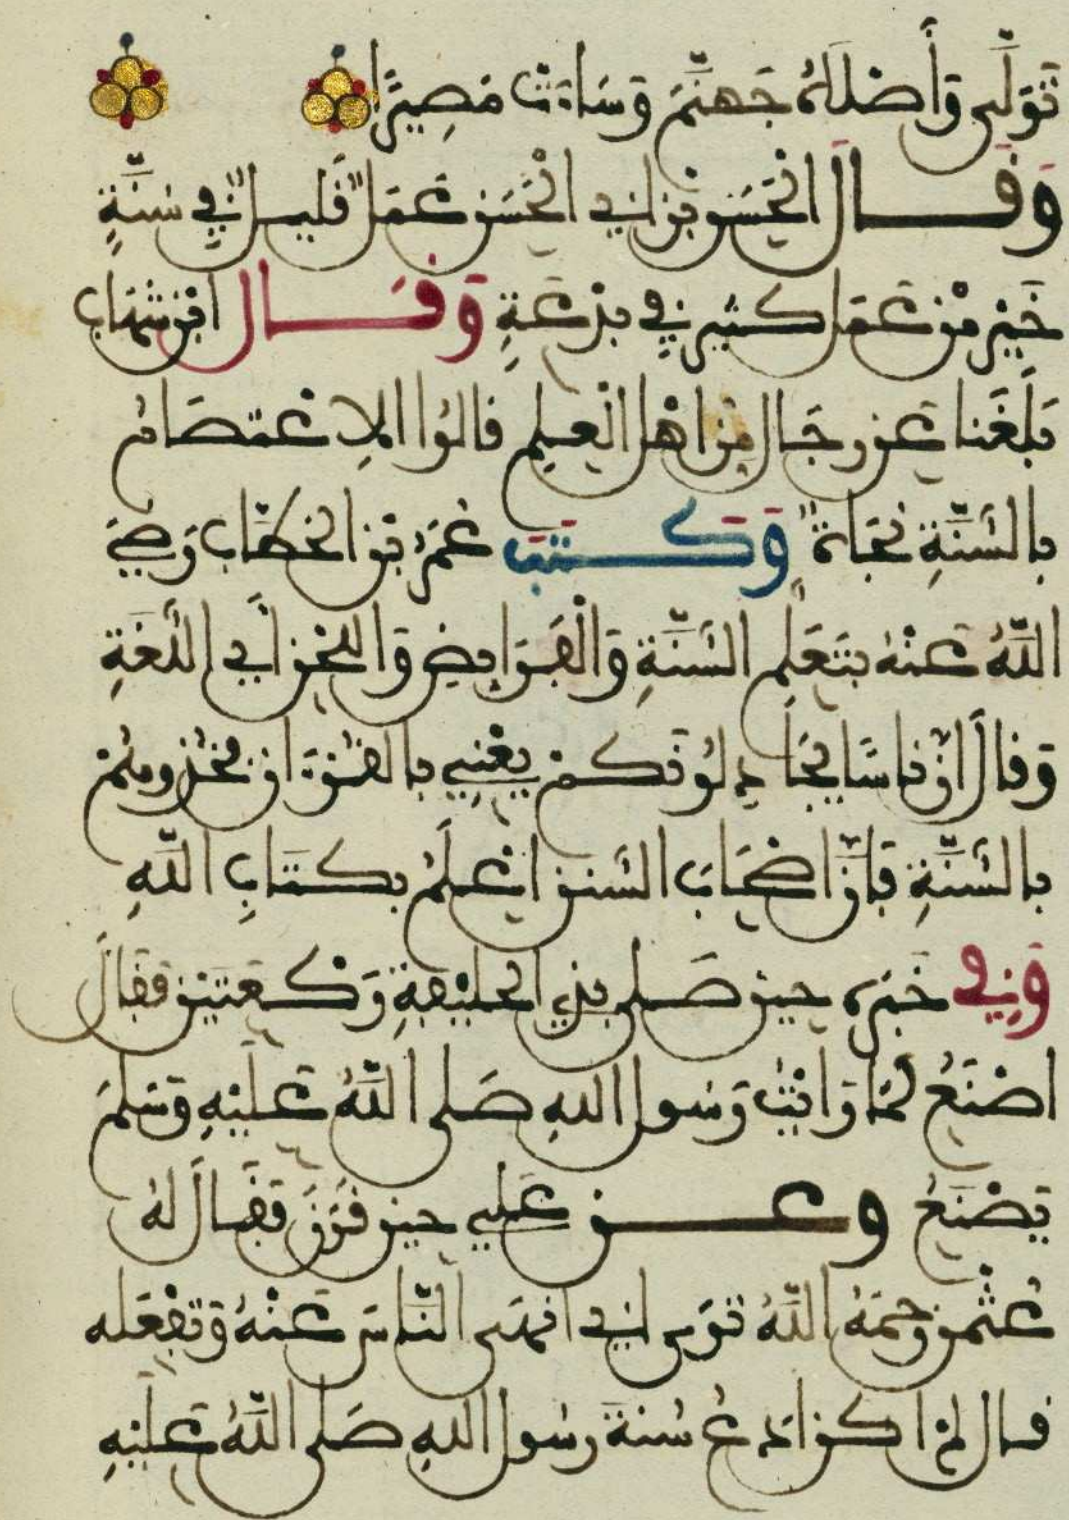 تَوَلَّى وَأُصْلِهِ جَهَنَّمَ وَسَاءَتْ مَصِيرًا
وَقَالَ الْحَسَنُ بْنُ أَبِي الْحَسَنِ عَمَلٌ قَلِيلٌ فِي سُنَّةٍ
خَيْرٌ مِنْ عَمَلٍ كَثِيرٍ فِي بِدْعَةٍ وَقَالَ ابْنُ شِهَابٍ
بَلَغَنَا عَنْ رِجَالٍ مِنْ أَهْلِ الْعِلْمِ قَالُوا الِاعْتِصَامُ
بِالسُّنَّةِ نَجَاةٌ وَكَتَبَ عُمَرُ بْنُ الْخَطَّابِ رَضِيَ
اللَّهُ عَنْهُ بِتَعَلُّمِ السُّنَّةِ وَالْفَرَائِضِ وَاللَّحْنِ أَيِ اللُّغَةِ
وَقَالَ إِنَّ نَاسًا يُجَادِلُونَكُمْ يَعْنِي بِالْقُرْءَانِ فَخُذُوهُمْ
بِالسُّنَّةِ فَإِنَّ أَصْحَابَ السُّنَنِ أَعْلَمُ بِكِتَابِ اللَّهِ
وَفِي خَبَرِهِ حِينَ صَلَّى بِذِي الْحُلَيْفَةِ رَكْعَتَيْنِ فَقَالَ
أَصْنَعُ كَمَا رَأَيْتُ رَسُولَ اللهِ صَلَّى اللَّهُ عَلَيْهِ وَسَلَّمَ
يَصْنَعُ وَعَنْ عَلِيٍّ حِينَ قَرَنَ فَقَالَ لَهُ
عُثْمَن رَحِمَهُ اللَّهُ تَرَى أَنِّي أَنْهَى النَّاسَ عَنْهُ وَتَفْعَلُه
قَالَ لَمْ أَكُنْ أَدَعُ سُنَّةَ رَسُولِ اللهِ صَلَّى اللَّهُ عَلَيْهِ